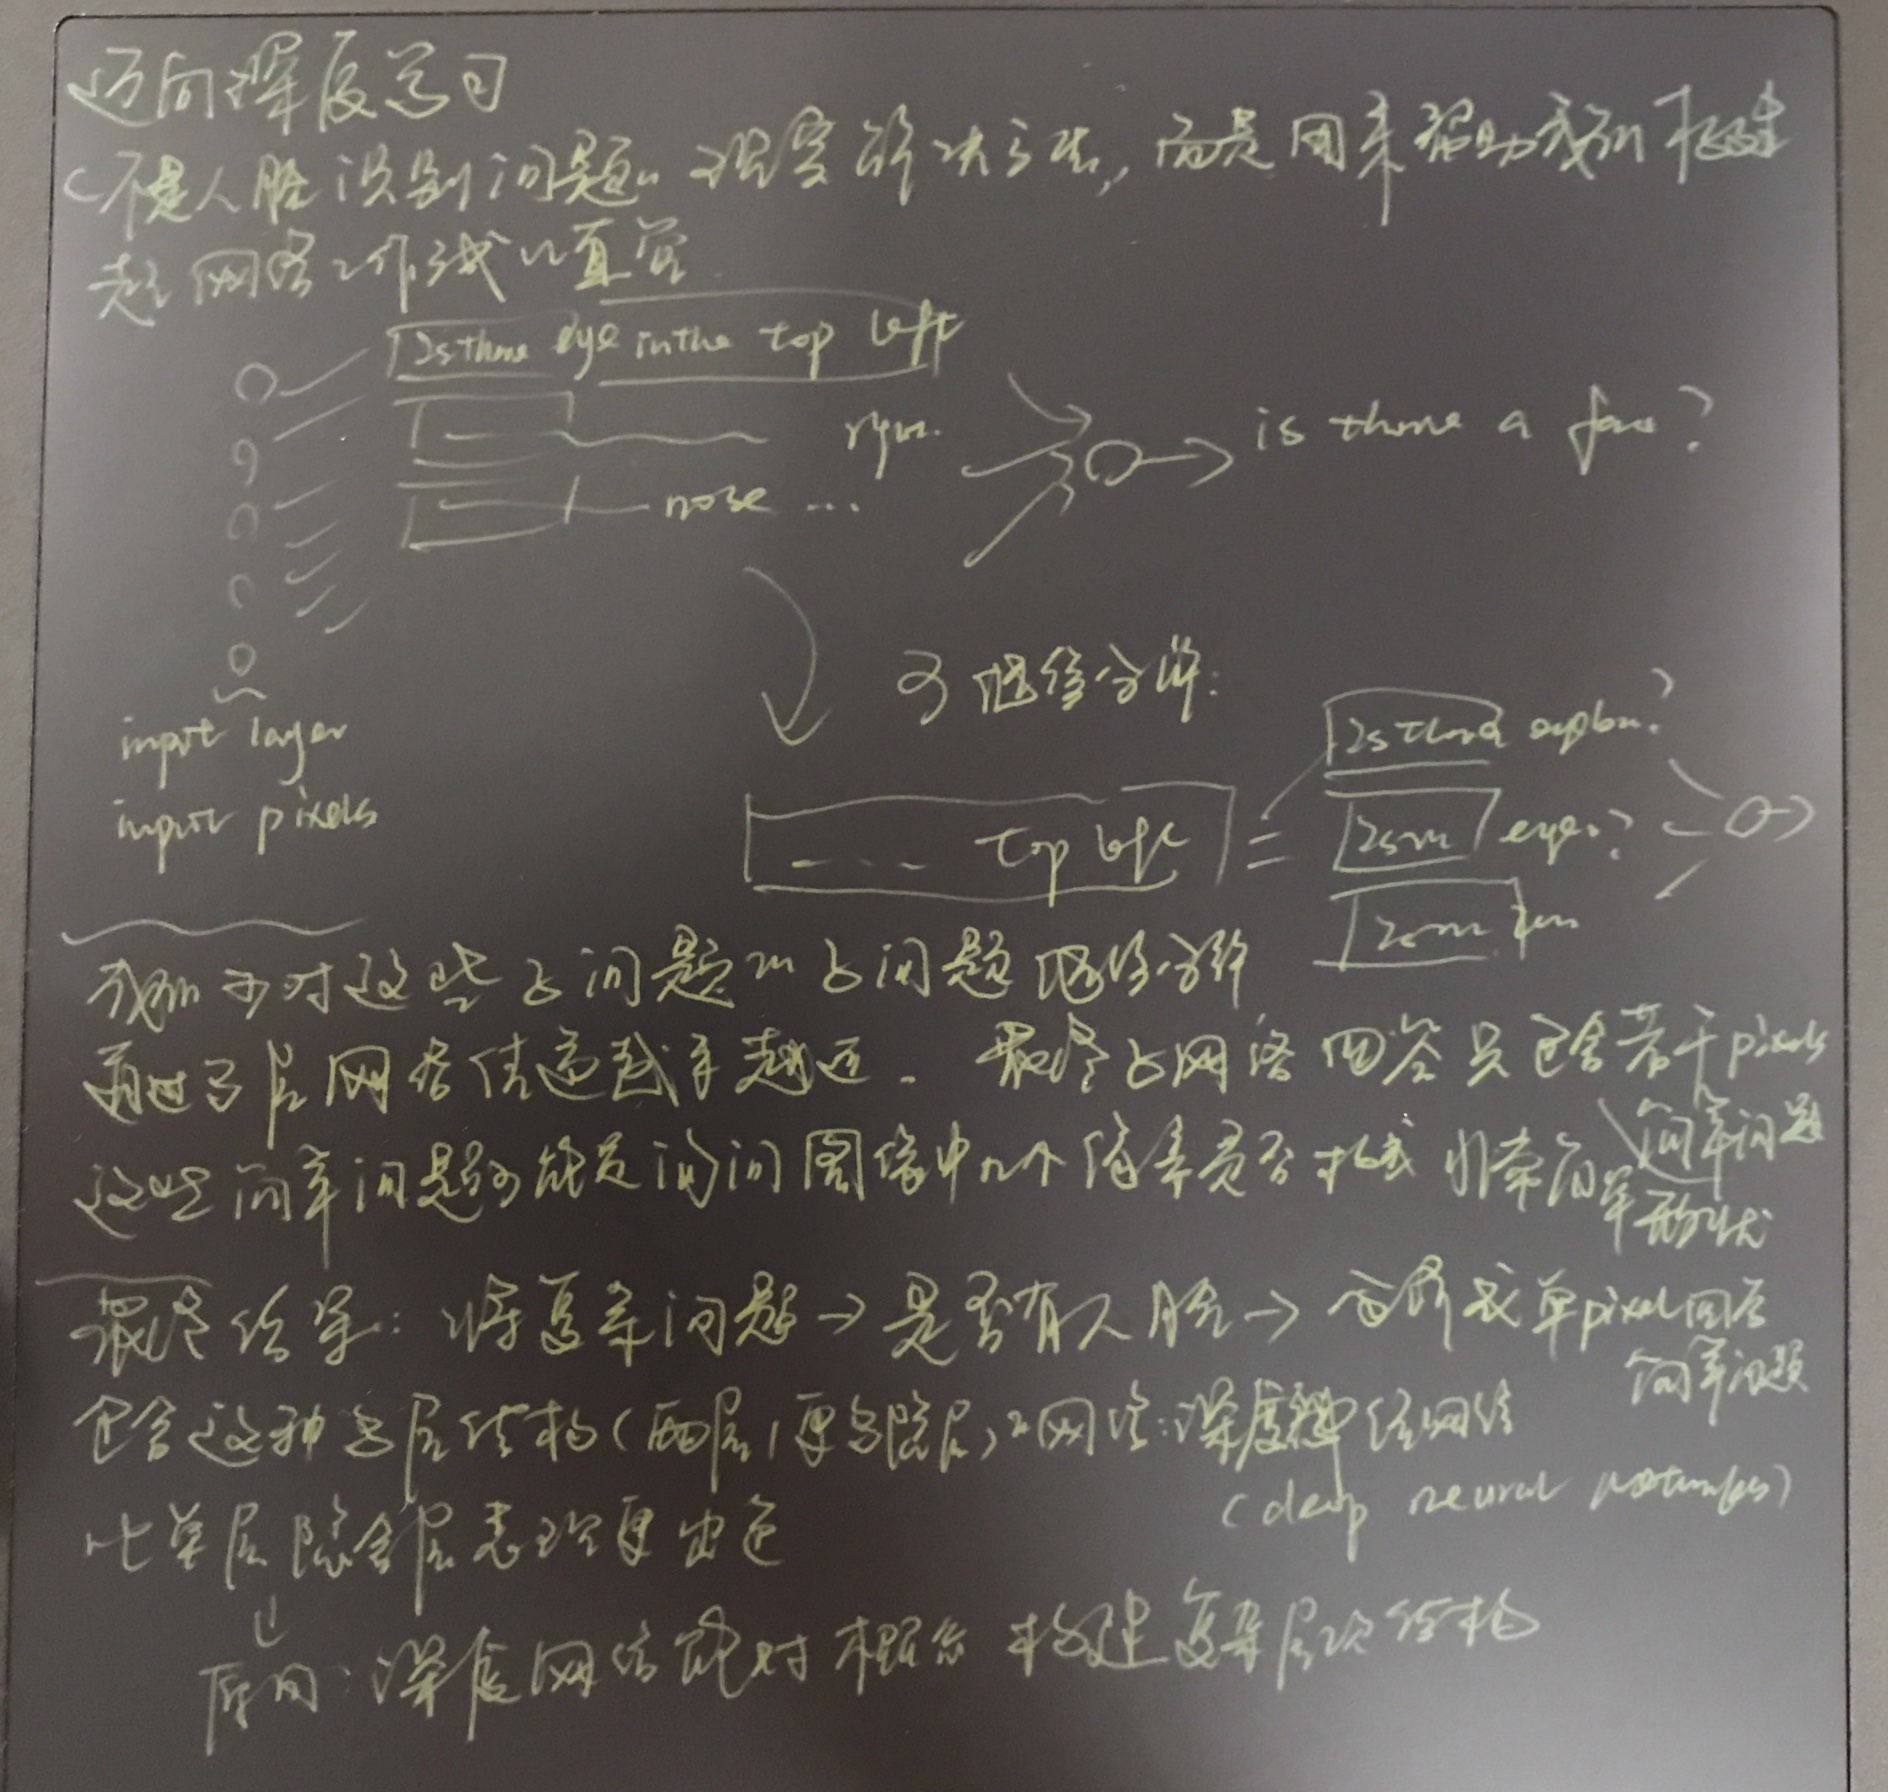 迈向深度学习
(不是人脸识别问题的现实解决方法,而是用来帮助我们构建
起网络工作方式的直觉
Is there eye in the top left
nose ...
is there a face?
可继续分解:
input layer
input pixels
Is there eyebrow?
... top left =
eyes?
我们可对这些子问题的子问题继续分解
通过多层网络传递越来越远. 最终子网络回答只包含若干pixels
简单问题
这些简单问题可能是询问图像中几个像素是否构成非常简单
形状
最终结果: 将复杂问题→是否有人脸→分解成单pixel回答
简单问题
包含这种多层结构(两层/更多隐层)的网络:深度神经网络
(deep neural networks)
比单层隐含层表现更出色
↓
原因:深度网络能对概念构建复杂层次结构